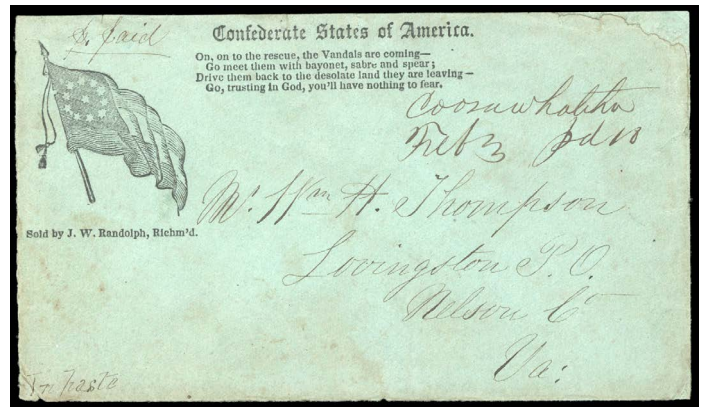 Paid
Confederate States of America.
On, on to the rescue, the Vandals are coming—
Go meet them with bayonet, sabre and spear;
Drive them back to the desolate land they are leaving—
Go, trusting in God, you'll have nothing to fear.
Coosawhatchie
Feb 3 Pd 10
Mr. Wm H. Thompson
Sold by J. W. Randolph, Richm'd.
Lovingston P. O.
Nelson Co
Va:
In haste